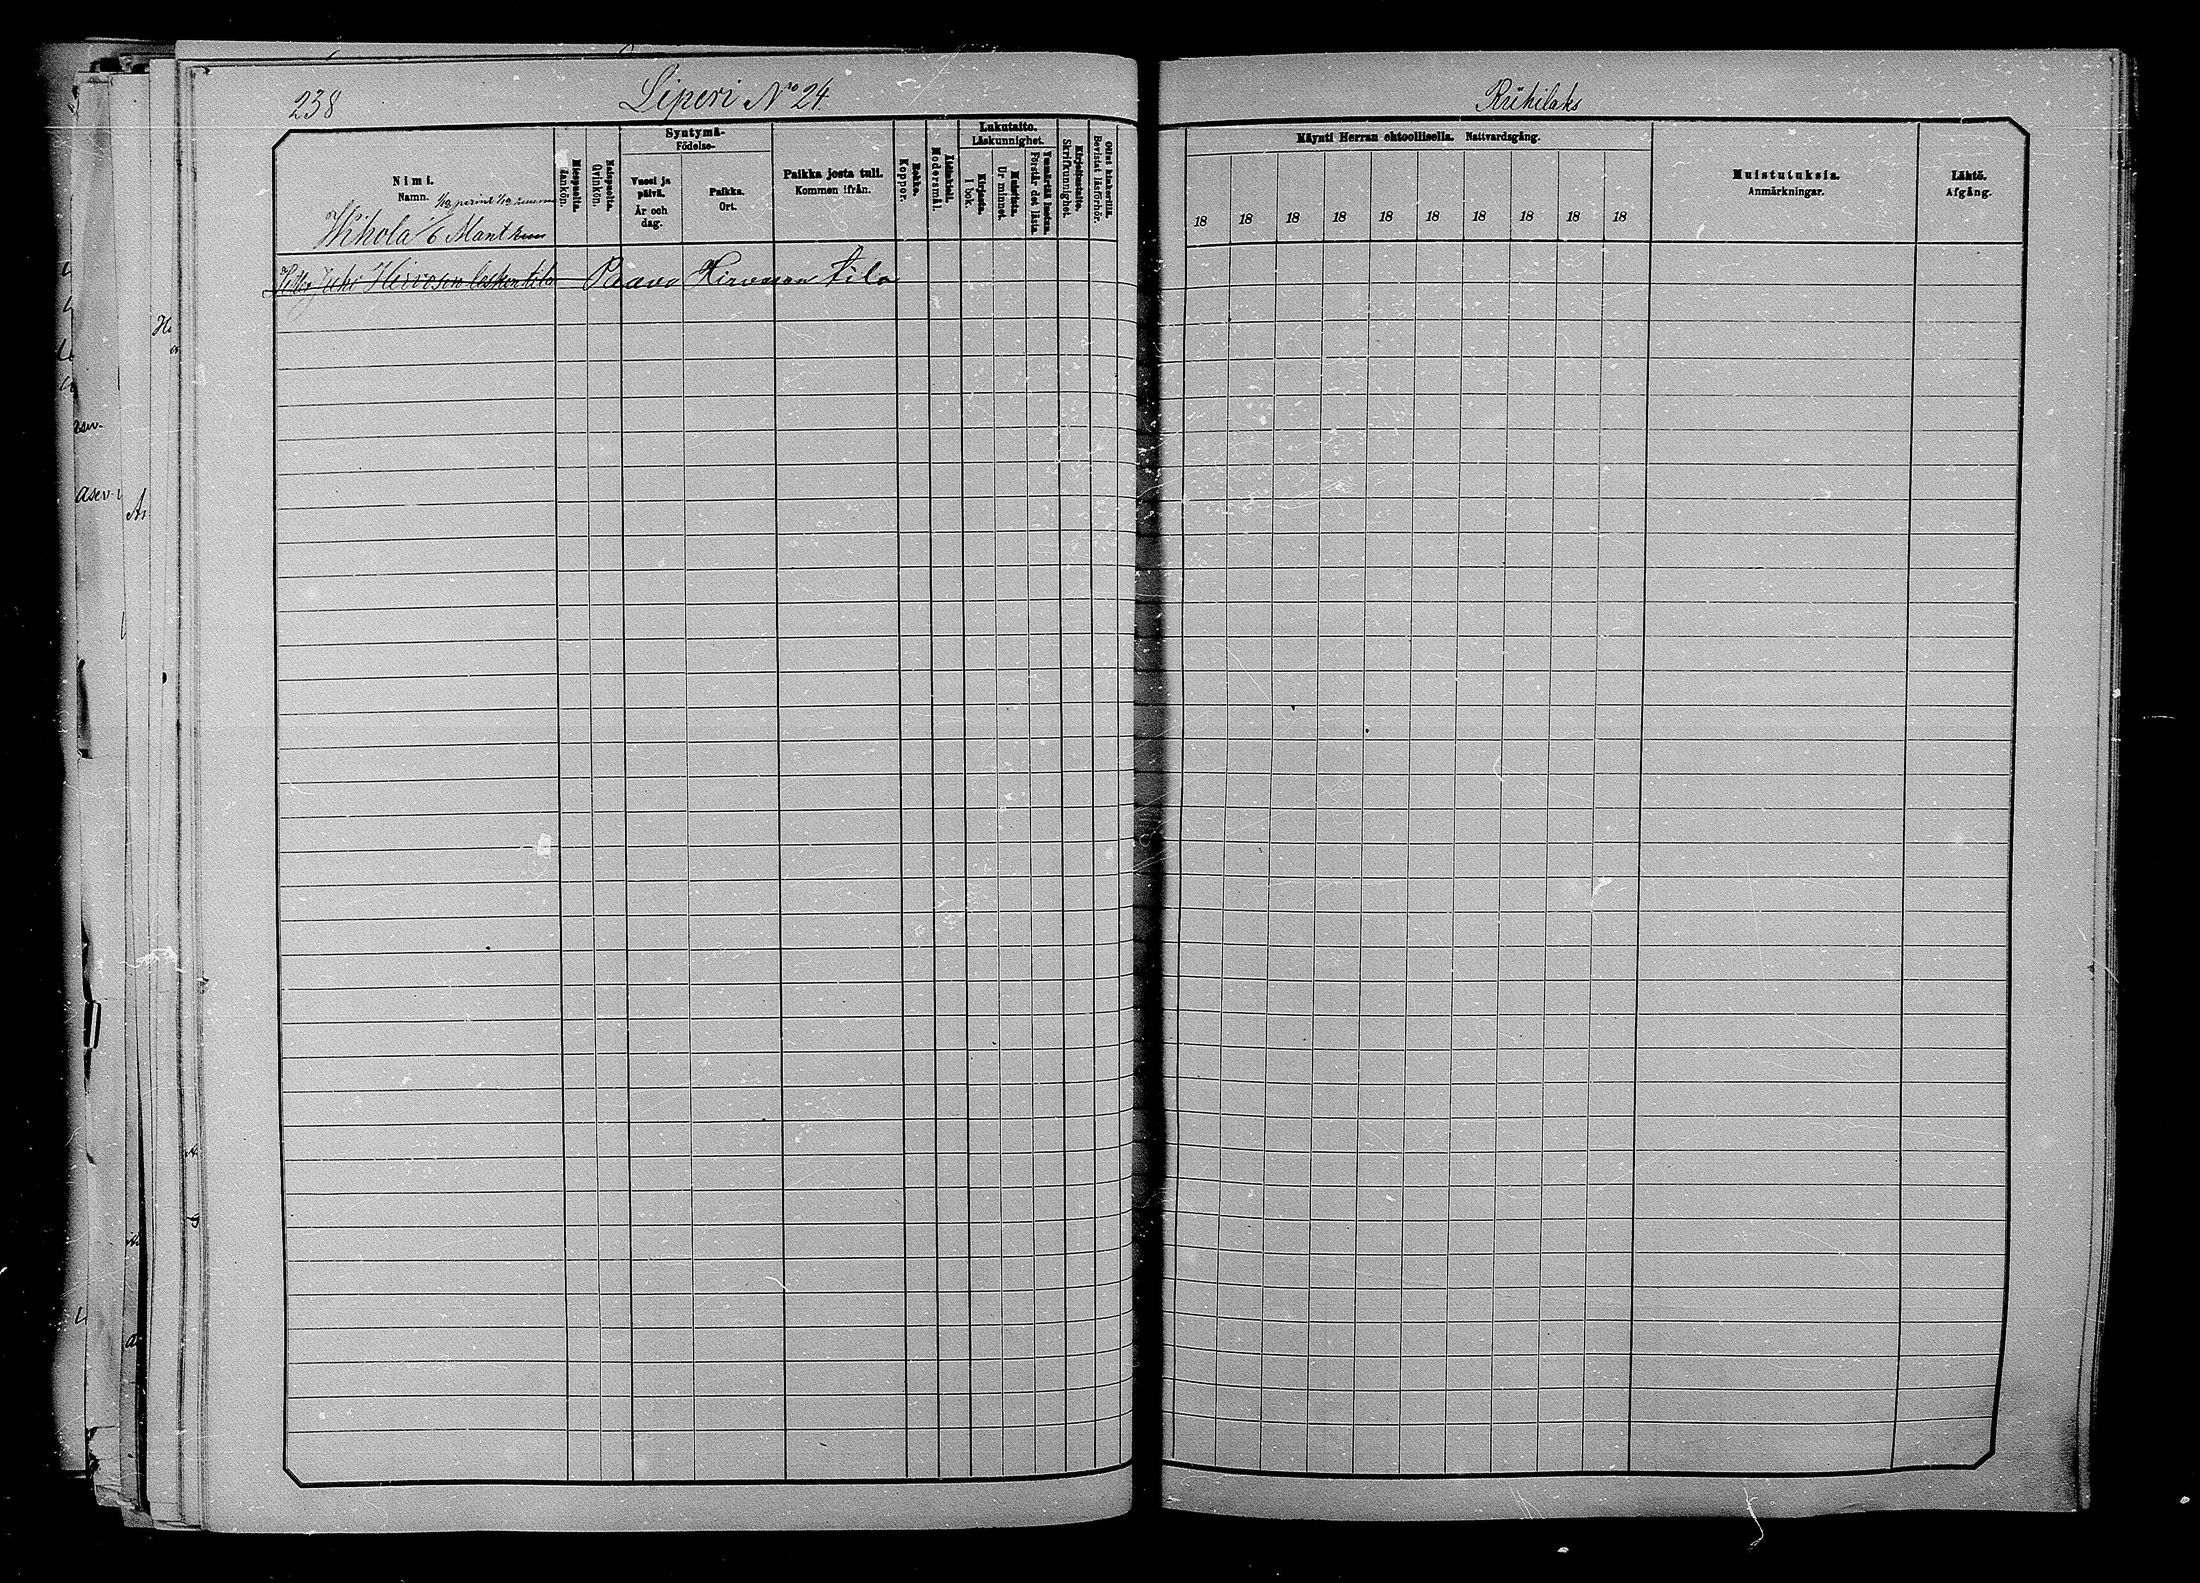 238 Liperi No 24 Riihilaks
Nimi.
Namn.
Miespuolta.
Mankön.
Naispuolta.
Qvinkön.
Syntymä-
Födelse-
Vuosi ja päivä.
År och dag.
Paikka.
Ort.
Paikka josta tuli.
Kommen ifrån.
Rokko.
Koppor.
Äidinkieli.
Modersmål.
Lukutaito.
Läskunnighet.
Kirjasta.
I bok.
Muistista.
Ur minnet.
Ymmärtää luetun.
Förstår det lästa.
Kirjoitustaito.
Skrifkunnighet.
Ollut kinkerillä.
Bevistat läsförhör.
Käynti Herran ehtoollisella. Nattvardsgång.
18 18 18 18 18 18 18 18 18 18
Muistutuksia.
Anmärkningar.
Lähtö.
Afgång.
Juho Hirvosen lesken tila Paavo Hirvosen tila